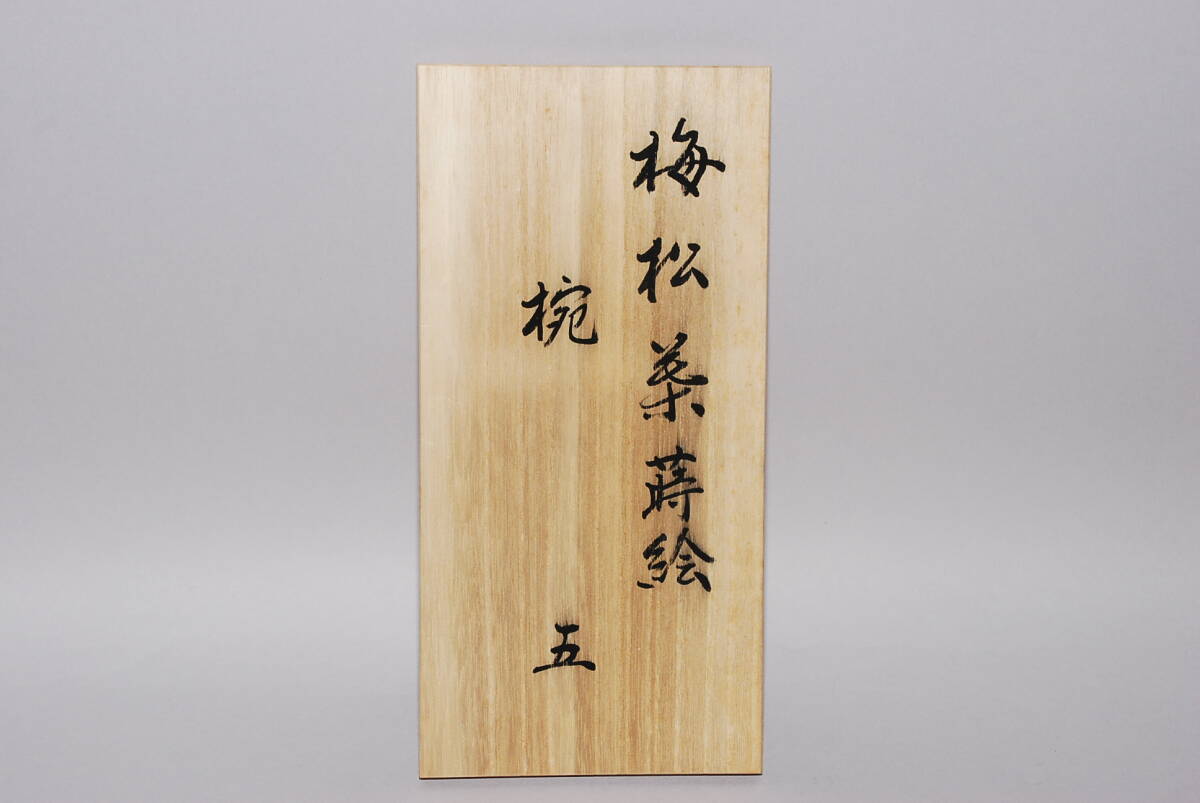 梅松葉蒔絵
椀 五